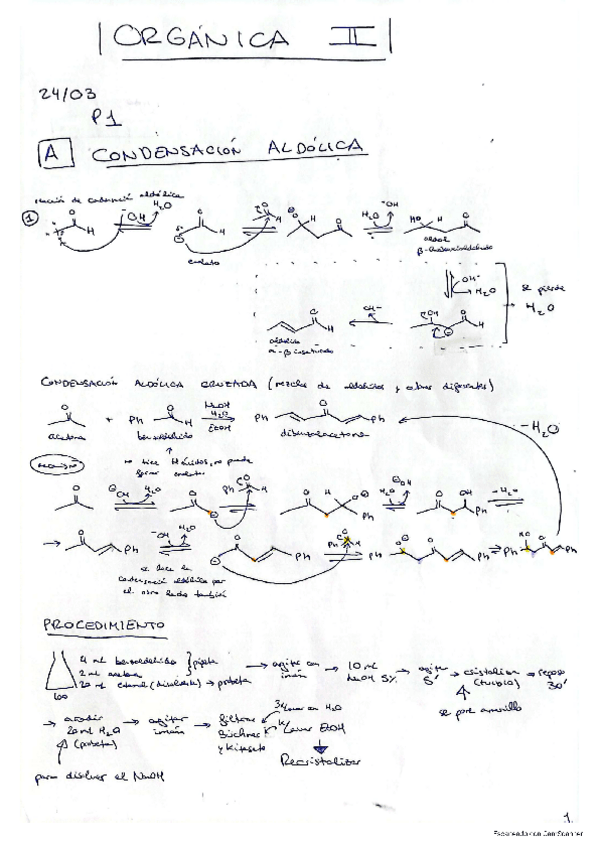 ORGÁNICA II
24/03
P1
A CONDENSACIÓN ALDÓLICA
reacción de condensación aldólica
1
⁻OH H₂O
H₂O ⁻OH
enolato
aldol
OH⁻
H₂O
se pierde
H₂O
OH⁻
aldehído
α-β insaturado
CONDENSACIÓN ALDÓLICA CRUZADA (mezcla de aldehídos y cetonas diferentes)
+ Ph H NaOH H₂O EtOH Ph Ph
acetona benzaldehído dibenzalacetona
-H₂O
no tiene H ácidos, no puede
formar enolatos
OH H₂O Ph H H₂O OH OH Ph -H₂O
Ph ⁻OH H₂O Ph Ph Ph Ph Ph
se hace la
condensación aldólica por
el otro lado también
PROCEDIMIENTO
4 mL benzaldehído } pipeta
2 mL acetona
20 mL etanol (disolvente) → probeta
100
→ agitar con imán → 10 mL NaOH 5% → agitar 5' → cristaliza (turbio) → reposo 30'
se pone amarillo
→ añadir 20 mL H₂O (probeta) → agitar imán → filtrar Büchner y Kitasato
3x lavar con H₂O
1x lavar EtOH
Recristalizar
para disolver el NaOH
1.
Escaneado con CamScanner